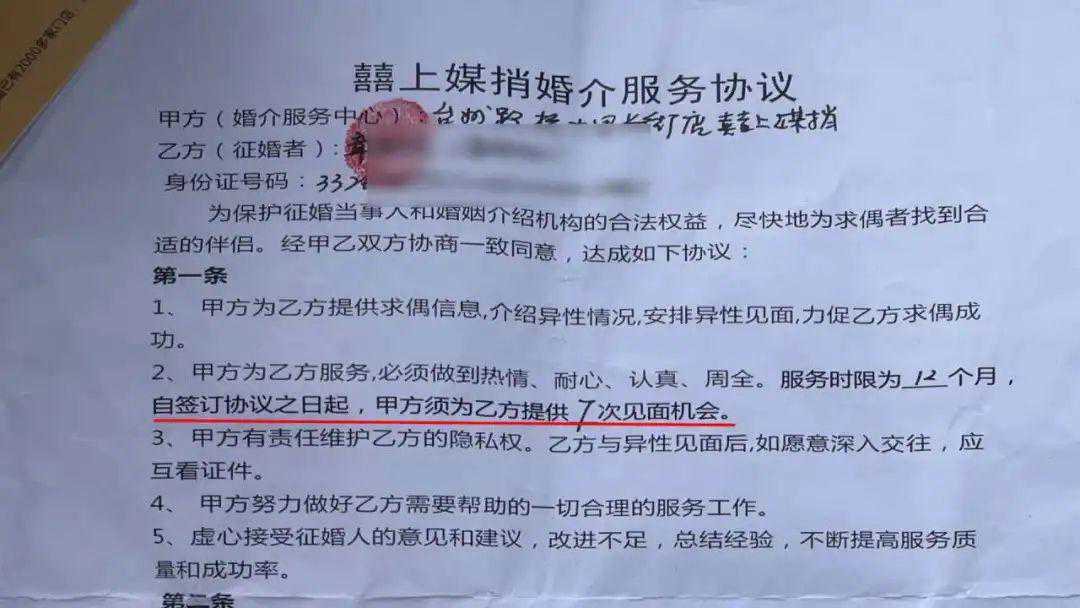 已有2000多家门店
囍上媒捎婚介服务协议
甲方（婚介服务中心）：台州路桥 店囍上媒捎
乙方（征婚者）：章
身份证号码：332
为保护征婚当事人和婚姻介绍机构的合法权益，尽快地为求偶者找到合
适的伴侣。经甲乙双方协商一致同意，达成如下协议：
第一条
1、 甲方为乙方提供求偶信息,介绍异性情况,安排异性见面,力促乙方求偶成
功。
2、 甲方为乙方服务,必须做到热情、耐心、认真、周全。服务时限为 12 个月，
自签订协议之日起，甲方须为乙方提供 7 次见面机会。
3、 甲方有责任维护乙方的隐私权。乙方与异性见面后,如愿意深入交往，应
互看证件。
4、 甲方努力做好乙方需要帮助的一切合理的服务工作。
5、虚心接受征婚人的意见和建议，改进不足，总结经验，不断提高服务质
量和成功率。
第二条